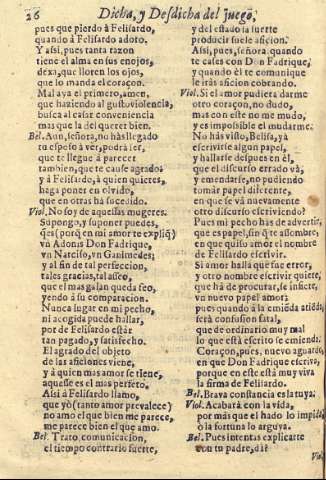 26 Dicha, y Desdicha del juego,
pues que pierdo à Felisardo,
quando à Felisardo adoro.
Y assi, pues tanta razon
tiene el alma en sus enojos,
dexa, que lloren los ojos,
que lo manda el coraçon.
Mal aya el primero, amen,
que haziendo al gusto violencia,
busca al casar conveniencia
mas que la del querer bien.
Bel. Aun, señora, no has llegado
tu esposo à ver, podrà ser,
que te llegue à parecer
tambien, que te cause agrado:
y à Felisardo, à quien quieres,
haga poner en olvido,
que en otras ha sucedido.
Viol. No soy de aquessas mugeres.
Supongo, y suponer puedes,
(porq en mi amor te expliq)
vn Adonis Don Fadrique,
vn Narciso, vn Ganimedes;
y al fin de tal perfeccion,
tales gracias, tal asseo,
que el mas galan queda feo,
yendo à su comparacion.
Nunca lugar en mi pecho,
ni acogida puede hallar,
por de Felisardo estàr
tan pagado, y satisfecho.
El agrado del objeto
de las aficiones viene,
y à quien mas amor se tiene,
aquesse es el mas perfeto.
Assi à Felisardo llamo,
que yo (tanto amor prevalece)
no amo el que bien me parece,
me parece bien el que amo.
Bel. Trato, comunicacion,
el tiempo contrario fuerte,
y del estado la suerte
producir suele aficion.
Assi, pues, señora, quando
te cases con Don Fadrique,
y quando èl te comunique
le iràs aficion cobrando.
Viol. Si el amor pudiera darme
otro coraçon, no dudo,
mas con este no me mudo,
y es impossible el mudarme.
No has visto, Belisa, yà
escrivirse algun papel,
y hallarse despues en èl,
que el discurso errado và,
y emendarse, no pudiendo
tomar papel diferente,
en que se và nuevamente
otro discurso escriviendo?
Pues mi pecho has de advertir,
que es papel, sin q te assombre,
en que quiso amor el nombre
de Felisardo escrivir.
Si amor halla que fue error,
y otro nombre escrivir quiere,
que ha de procurar, se infiere,
vn nuevo papel amor;
pues quando à la emiēda atiēda,
serà confusion fatal,
que de ordinario muy mal
lo que està escrito se emienda.
Coraçon, pues, nuevo aguardo,
en que Don Fadrique escriva,
porque en este està muy viva
la firma de Felisardo.
Bel. Brava constancia es la tuya.
Viol. Acabarà con la vida,
por mas que el hado lo impida
ò la fortuna lo arguya.
Bel. Pues intentas explicarte
con tu padre, di?
Por